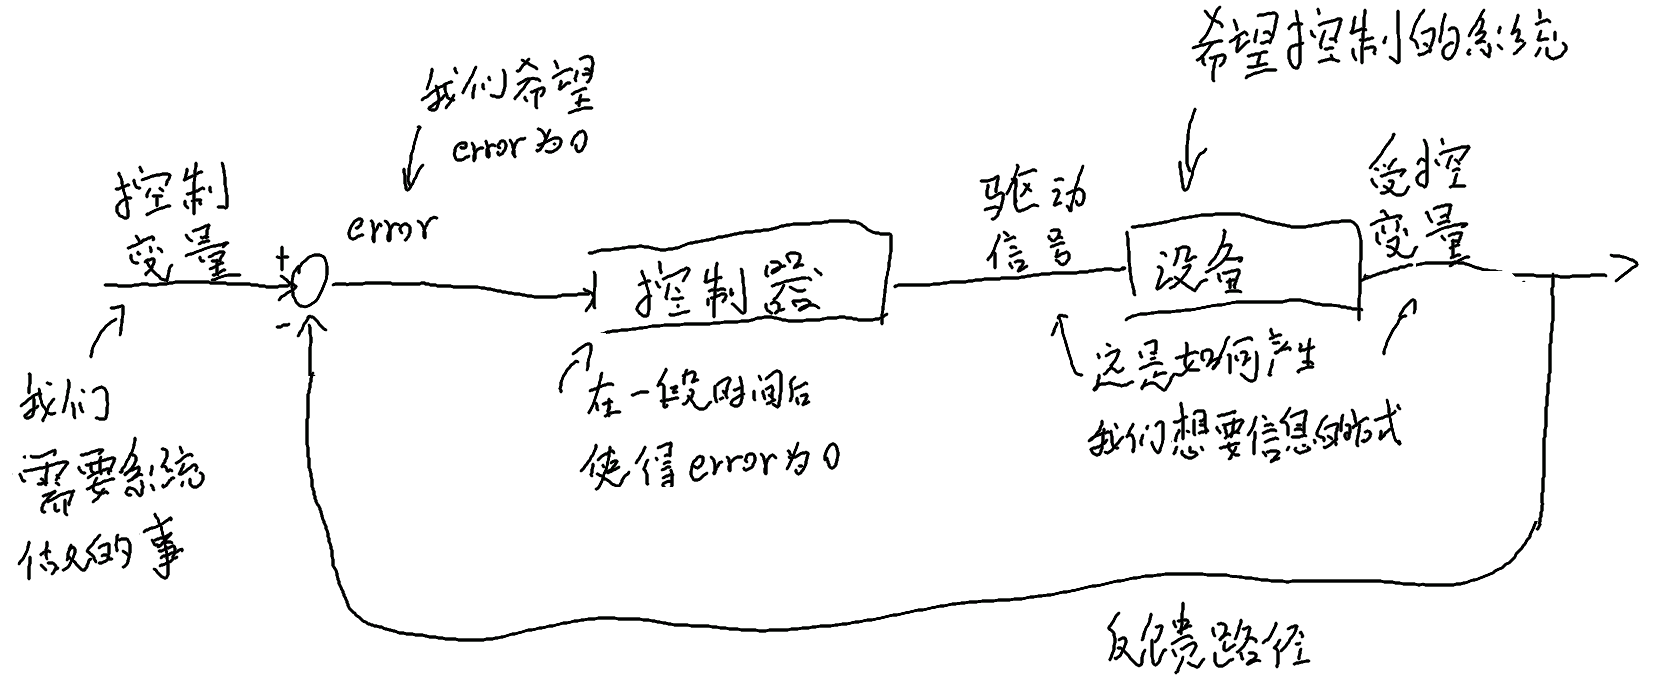 希望控制的系统
我们希望
error为0
控制
变量
+
error
驱动
信号
受控
变量
控制器
设备
-
我们
需要系统
做的事
在一段时间后
使得error为0
这是如何产生
我们想要信息的方式
反馈路径